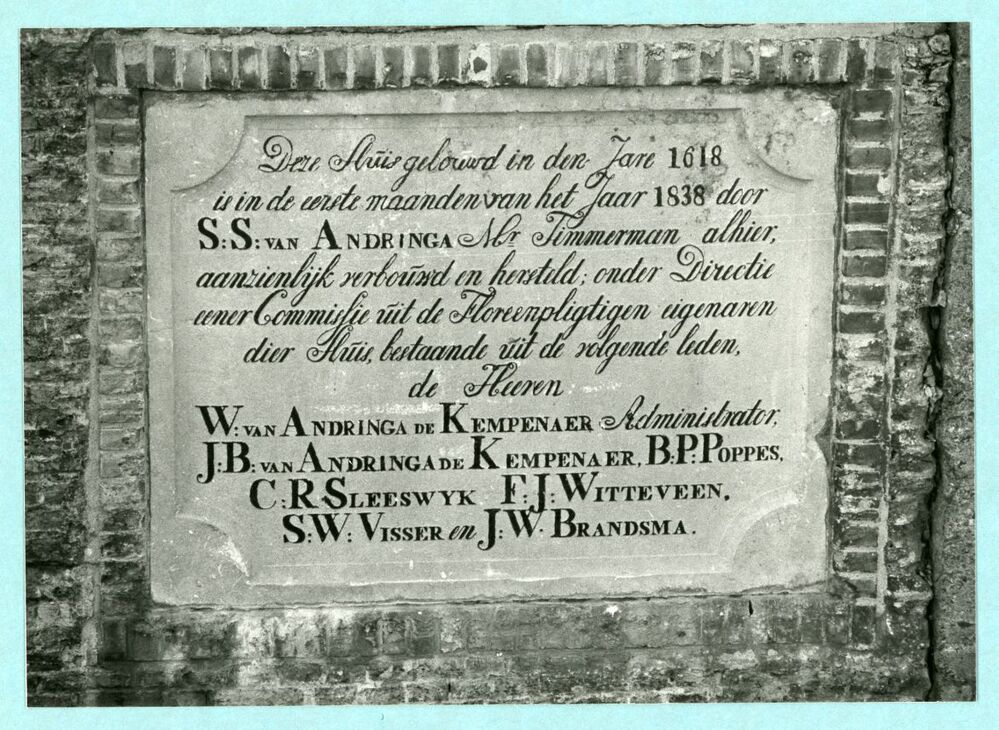 Deze Sluis gebouwd in den Jare 1618
is in de eerste maanden van het Jaar 1838 door
S: S: VAN ANDRINGA Mr. Timmerman alhier,
aanzienlijk verbouwd en hersteld; onder Directie
eener Commissie uit de Floreenpligtigen eigenaren
dier Sluis, bestaande uit de volgende leden,
de Heeren
W: VAN ANDRINGA DE KEMPENAER Administrator,
J: B: VAN ANDRINGA DE KEMPENAER, B: P: POPPES,
C: R: SLEESWYK F: J: WITTEVEEN,
S: W: VISSER en J: W. BRANDSMA.